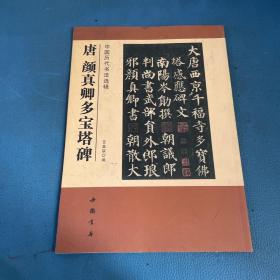 大唐西京千福寺多寶佛
塔感應碑文
南陽岑勛撰 朝議郎
判尚書武部員外郎琅
邪顏真卿書 朝散大
中国历代书法选辑
唐 颜真卿多宝塔碑
中国书店